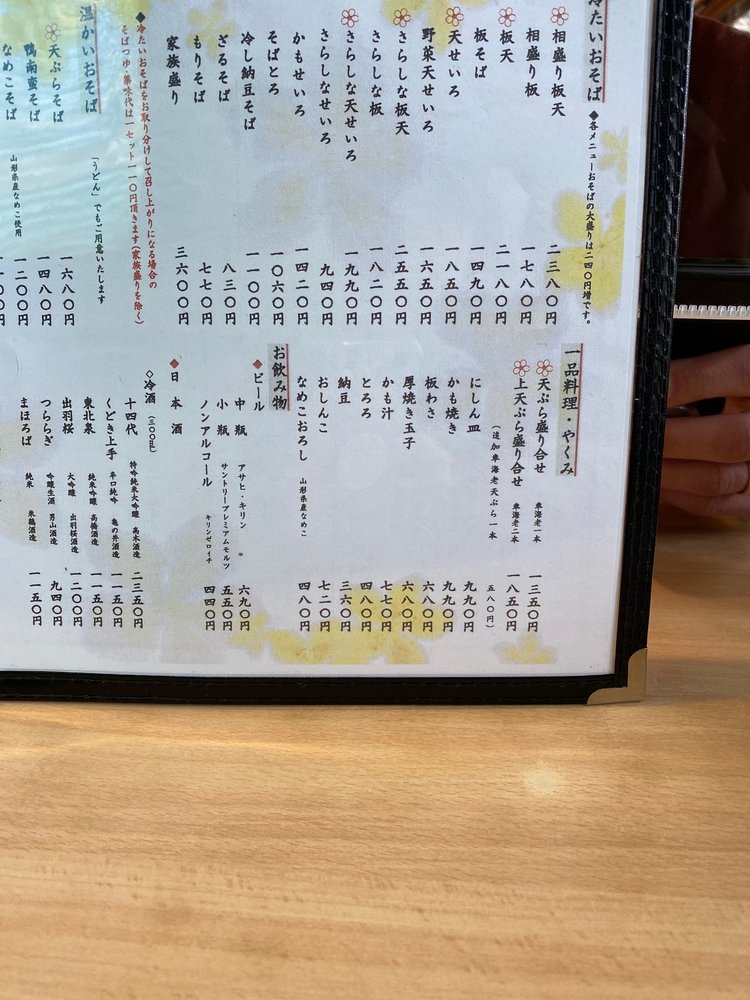 冷たいおそば
◆各メニューおそばの大盛りは二四〇円増です。
相盛り板天 二三八〇円
相盛り板 一七八〇円
板天 二一八〇円
板そば 一四九〇円
天せいろ 一八五〇円
野菜天せいろ 一六五〇円
さらしな板天 二五五〇円
さらしな板 一八二〇円
さらしな天せいろ 一九九〇円
さらしなせいろ 九四〇円
かもせいろ 一四二〇円
そばとろ 一〇六〇円
冷し納豆そば 一一〇〇円
ざるそば 八三〇円
もりそば 七七〇円
家族盛り 三六〇〇円
◆冷たいおそばをお取り分けして召し上がりになる場合の
そばつゆ・薬味代は一セット一一〇円頂きます(家族盛りを除く)
温かいおそば
「うどん」でもご用意いたします
天ぷらそば 一六八〇円
鴨南蛮そば 一四八〇円
なめこそば 山形県産なめこ使用 一二〇〇円
一品料理・やくみ
天ぷら盛り合せ 車海老一本 一三五〇円
上天ぷら盛り合せ 車海老二本 一八五〇円
(追加車海老天ぷら一本 五八〇円)
にしん皿 九九〇円
かも焼き 九九〇円
板わさ 六八〇円
厚焼き玉子 六八〇円
かも汁 七七〇円
とろろ 四八〇円
納豆 三六〇円
おしんこ 七二〇円
なめこおろし 山形県産なめこ 四八〇円
お飲み物
◆ビール
中瓶 アサヒ・キリン 六九〇円
小瓶 サントリープレミアムモルツ 五五〇円
ノンアルコール キリンゼロイチ 四四〇円
◆日本酒
◇冷酒(三〇〇mL)
十四代 特吟純米大吟醸 高木酒造 二三五〇円
くどき上手 辛口純吟 亀の井酒造 一一五〇円
東北泉 純米吟醸 高橋酒造 一一五〇円
出羽桜 大吟醸 出羽桜酒造 一二〇〇円
つららぎ 吟醸生酒 男山酒造 九四〇円
まほろば 純米 米鶴酒造 一一五〇円